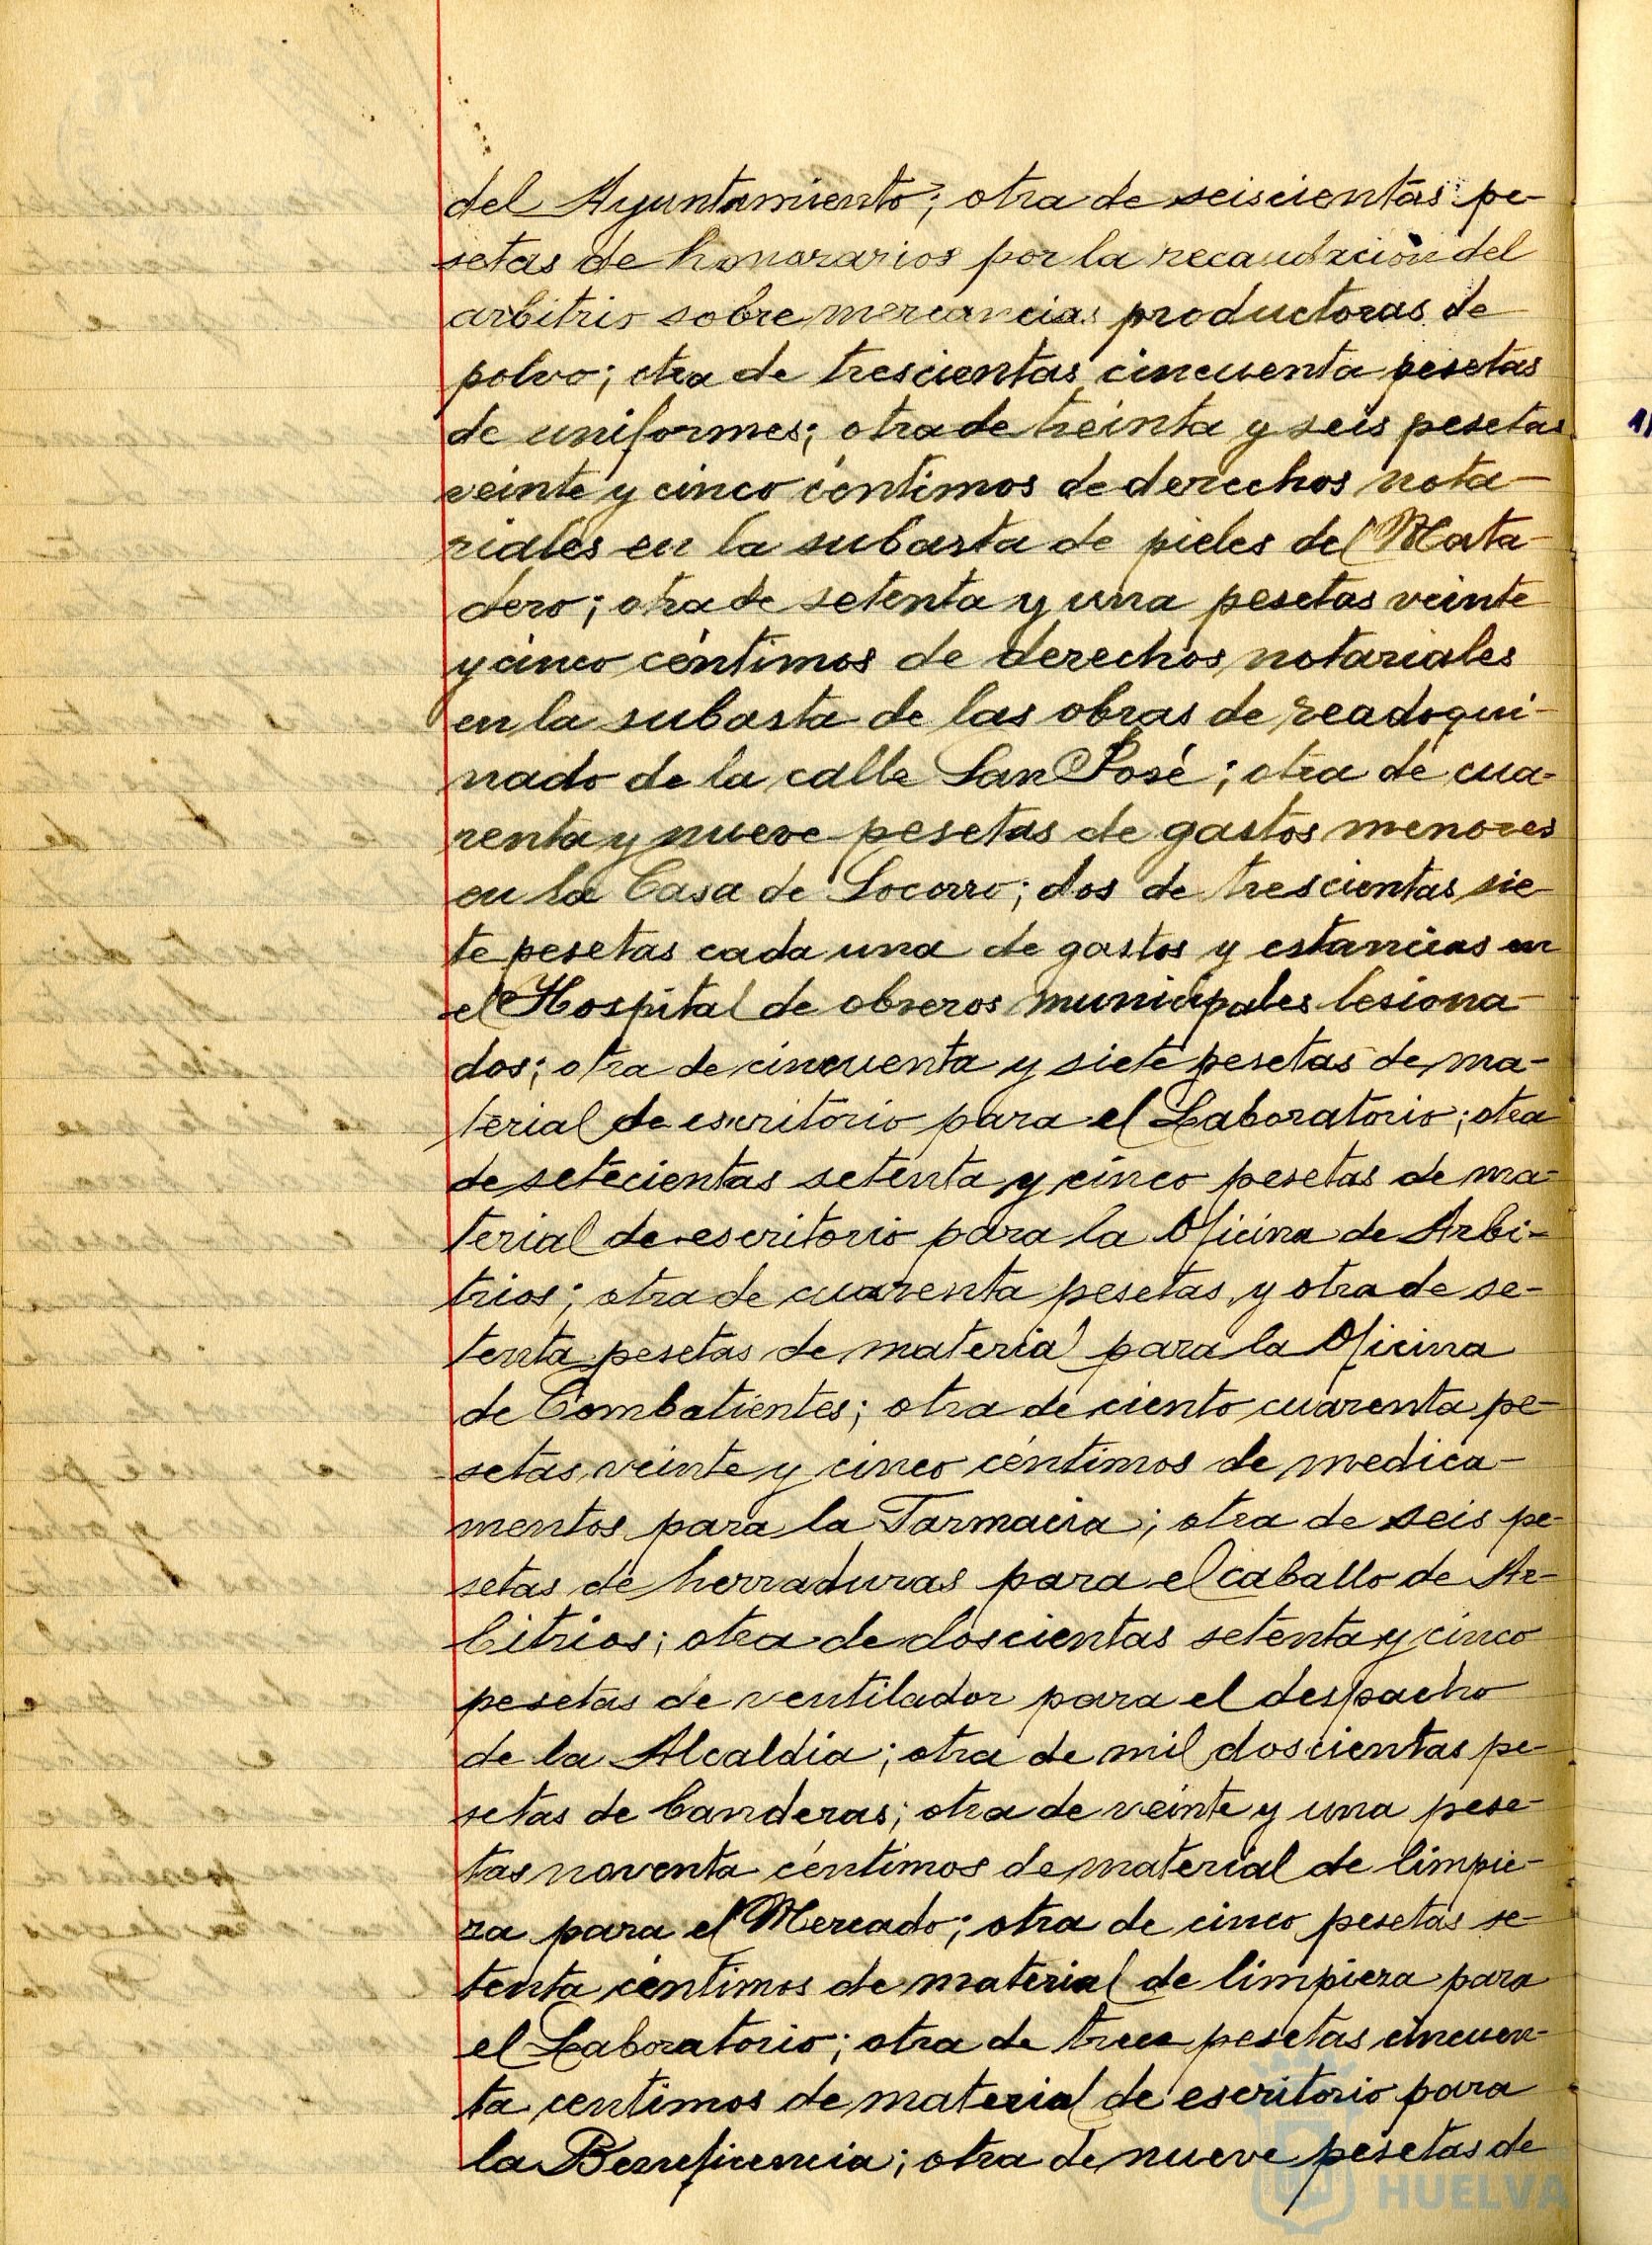 del Ayuntamiento; otra de seiscientas pe-
setas de honorarios por la recaudación del
arbitrio sobre mercancias productoras de
polvo; otra de trescientas cincuenta pesetas
de uniformes; otra de treinta y seis pesetas
veinte y cinco céntimos de derechos nota-
riales en la subasta de pieles del Mata-
dero; otra de setenta y una pesetas veinte
y cinco céntimos de derechos notariales
en la subasta de las obras de readoqui-
nado de la calle San José; otra de cua-
renta y nueve pesetas de gastos menores
en la Casa de Socorro; dos de trescientas sie-
te pesetas cada una de gastos y estancias en
el Hospital de obreros municipales lesiona-
dos; otra de cincuenta y siete pesetas de ma-
terial de escritorio para el Laboratorio; otra
de setecientas setenta y cinco pesetas de ma-
terial de escritorio para la Oficina de Arbi-
trios; otra de cuarenta pesetas y otra de se-
tenta pesetas de material para la Oficina
de Combatientes; otra de ciento cuarenta pe-
setas veinte y cinco céntimos de medica-
mentos para la Farmacia; otra de seis pe-
setas de herraduras para el caballo de Ar-
bitrios; otra de doscientas setenta y cinco
pesetas de ventilador para el despacho
de la Alcaldia; otra de mil doscientas pe-
setas de banderas; otra de veinte y una pese-
tas noventa céntimos de material de limpie-
za para el Mercado; otra de cinco pesetas se-
tenta céntimos de material de limpieza para
el Laboratorio; otra de pesetas cincuen-
ta centimos de material de escritorio para
la Beneficencia; otra de nueve pesetas de
HUELVA